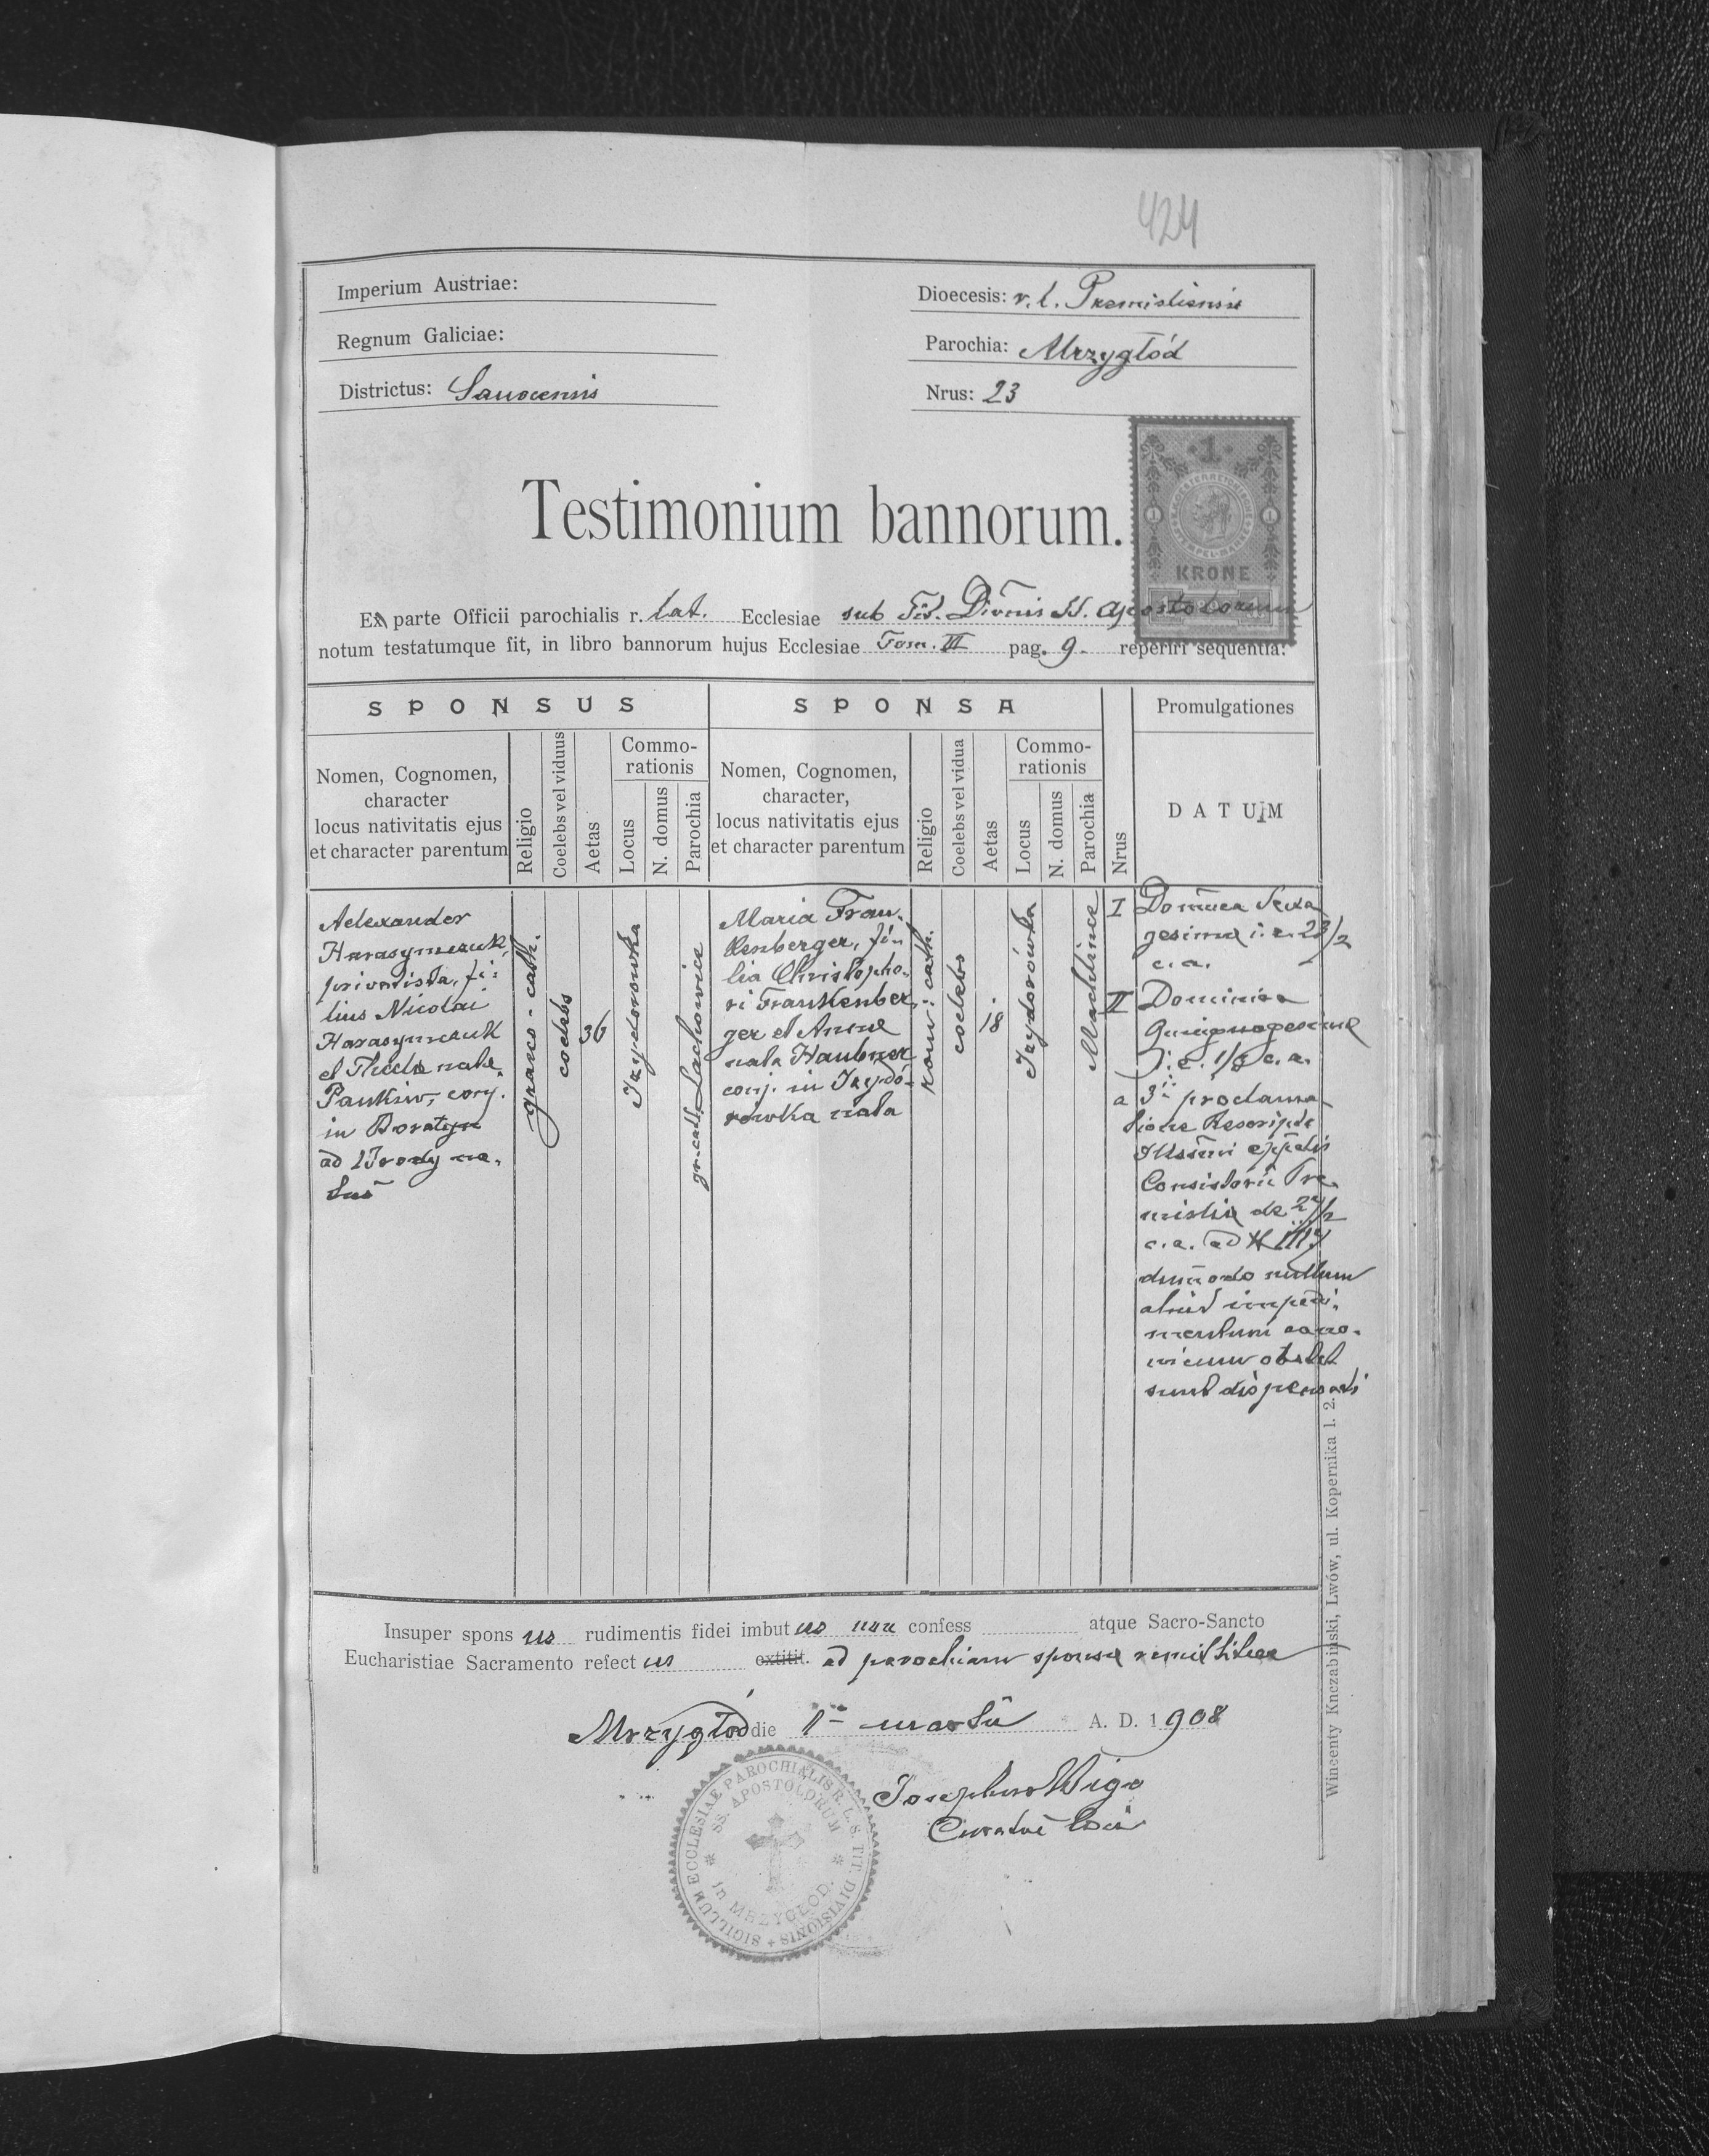 424
Imperium Austriae:
Regnum Galiciae:
Districtus: Sanocensis
Dioecesis: r. l. Premisliensis
Parochia: Mrzygłód
Nrus: 23
1
KRONE
Testimonium bannorum.
Ex parte Officii parochialis r. lat. Ecclesiae sub Tit. Divonis SS. Apostolorum
notum testatumque fit, in libro bannorum hujus Ecclesiae Tom. III pag. 9. reperiri sequentia:
SPONSUS
SPONSA
Nrus
Promulgationes
Nomen, Cognomen,
character
locus nativitatis ejus
et character parentum
Religio
Coelebs vel viduus
Aetas
Commo-
rationis
Locus
N. domus
Parochia
Nomen, Cognomen,
character,
locus nativitatis ejus
et character parentum
Religio
Coelebs vel vidua
Aetas
Commo-
rationis
Locus
N. domus
Parochia
DATUM
Alexander
Harasymczuk
privatista, fi-
lius Nicolai
Harasymczuk
et Theclae natae
Pankiw, conj.
in Boratyn
ad Brody na-
tus
graeco-cath.
coelebs
36
Izydorowka
gr. cath. Lachowice
Maria Fran-
kenberger, fi-
lia Christopho-
ri Frankenber-
ger et Annae
nata Haubner
conj. in Izydo-
rówka nata
rom: cath.
coelebs
18
Izydorówka
Machlince
I Domnca Sexa
gesima i. e. 23/2
c. a.
II Dominica
Quinquagesimae
i. e. 1/3 c. a.
a 3ia proclama-
tione Rescripto
Illssimi
Consistorii Pre-
mislie de 27/2
c. a. ad N
dummodo nullum
aliud impedi-
mentum cano-
nicum obstet
sunt dispensati
Insuper sponsus rudimentis fidei imbutus non confess atque Sacro-Sancto
Eucharistiae Sacramento refectus extitit. ad parochiam sponsae remittitur
Mrzygłód die 1a martii A. D. 1908
Josephus Wiga
Curatus loci
SIGILLUM ECCLESIAE PAROCHIALIS R. L. S. TIT. DIVISIONIS
SS. APOSTOLORUM
in MRZYGŁOD.
Wincenty Knczabiński, Lwów, ul. Kopernika l. 2.